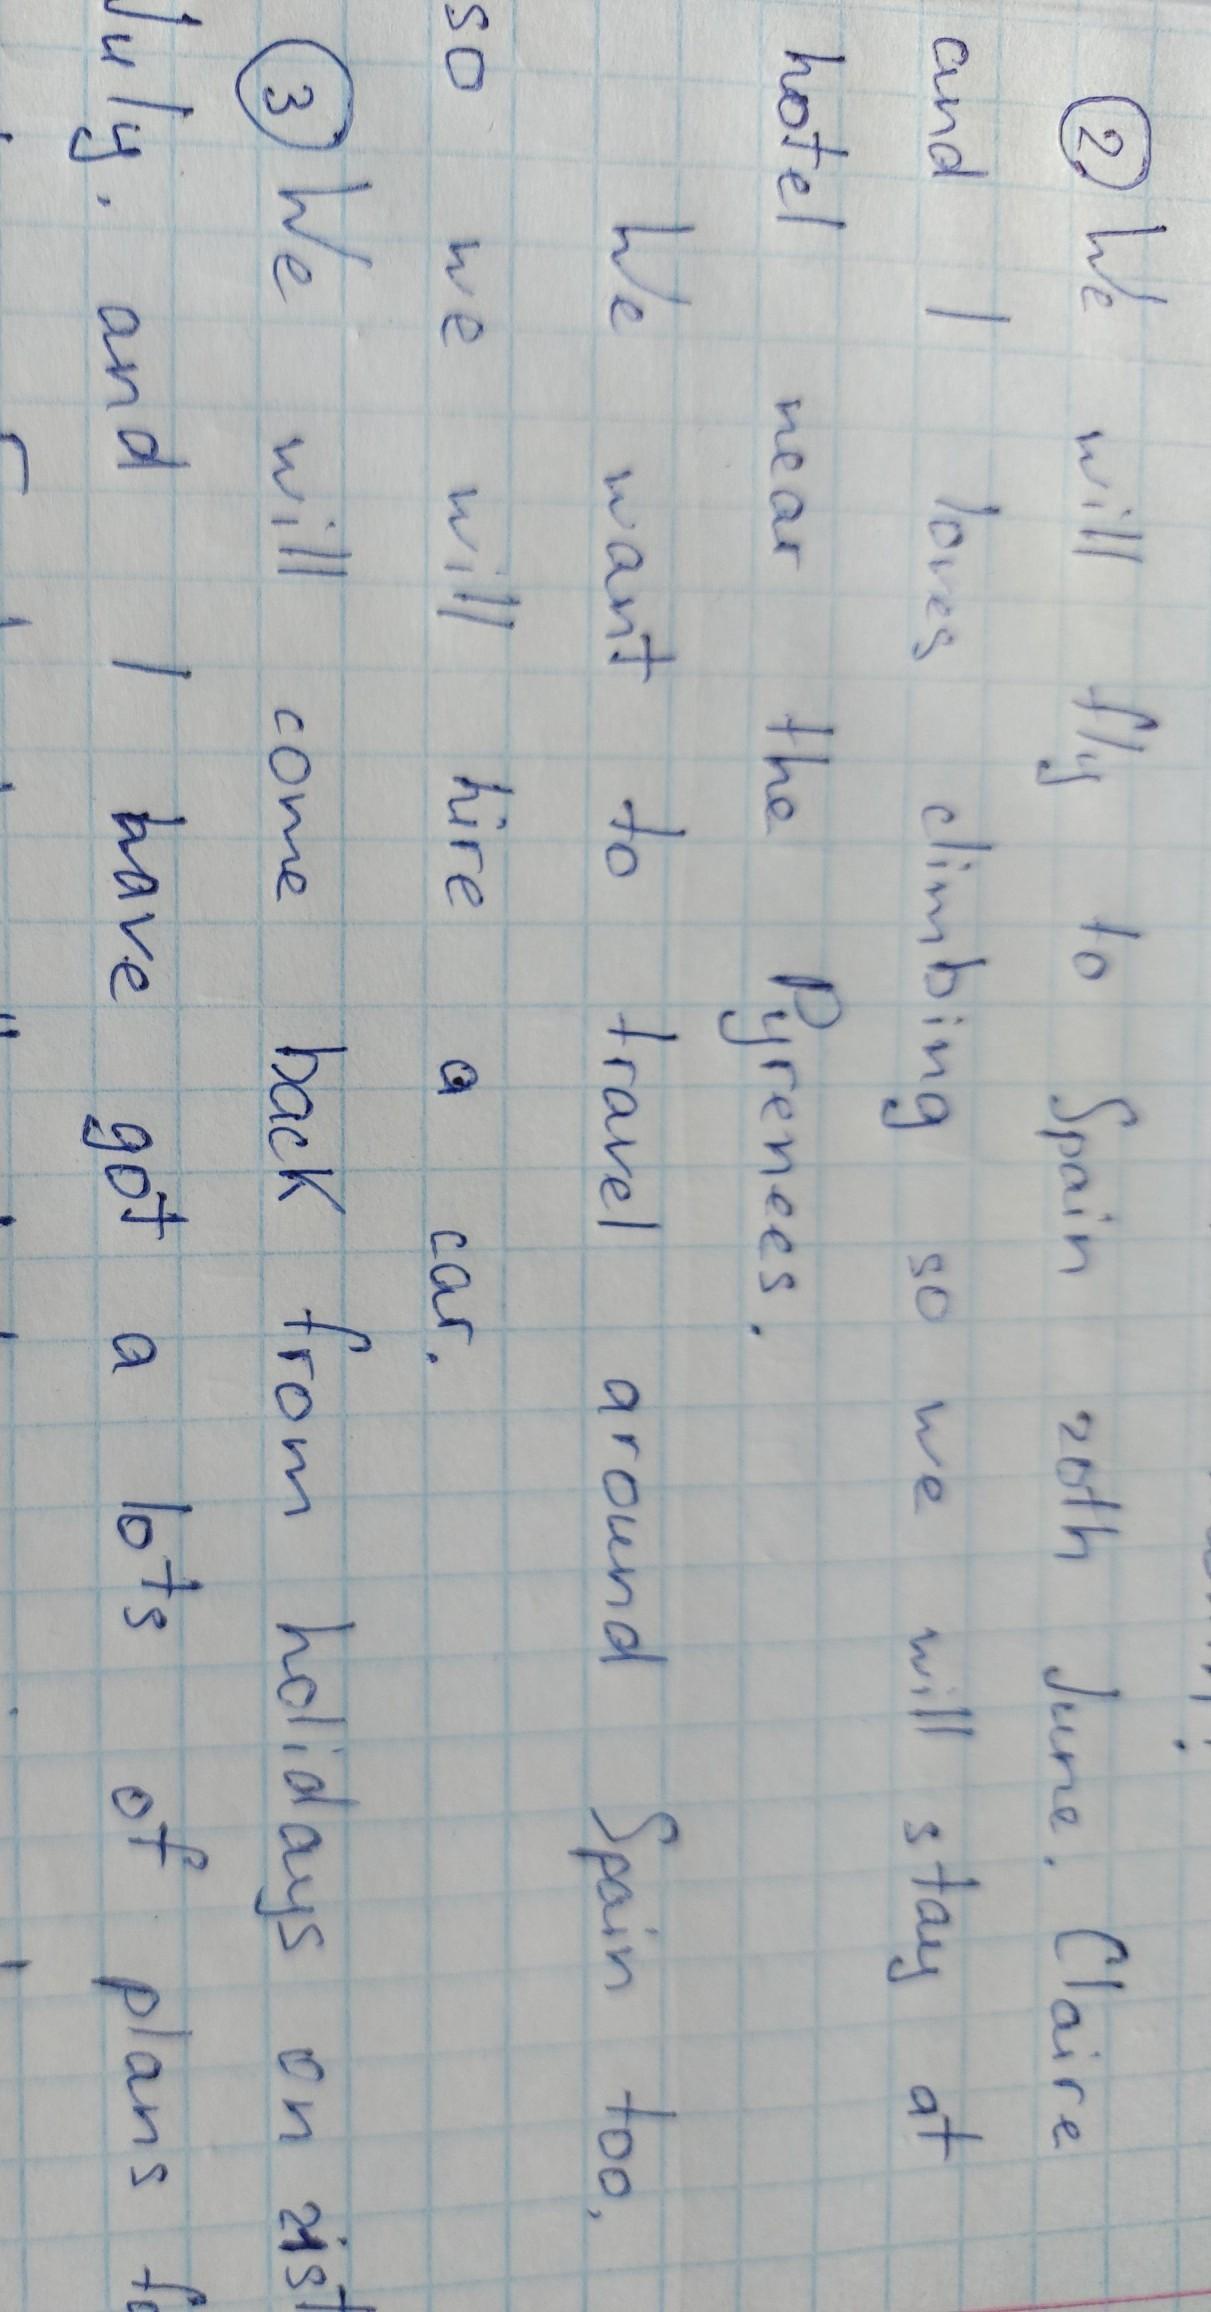 ② We will fly to Spain 20th June. Claire
and I loves climbing so we will stay at
hotel near the Pyrenees.
We want to travel around Spain too,
so we will hire a car.
③ We will come back from holidays on 21st
July, and I have got a lots of plans